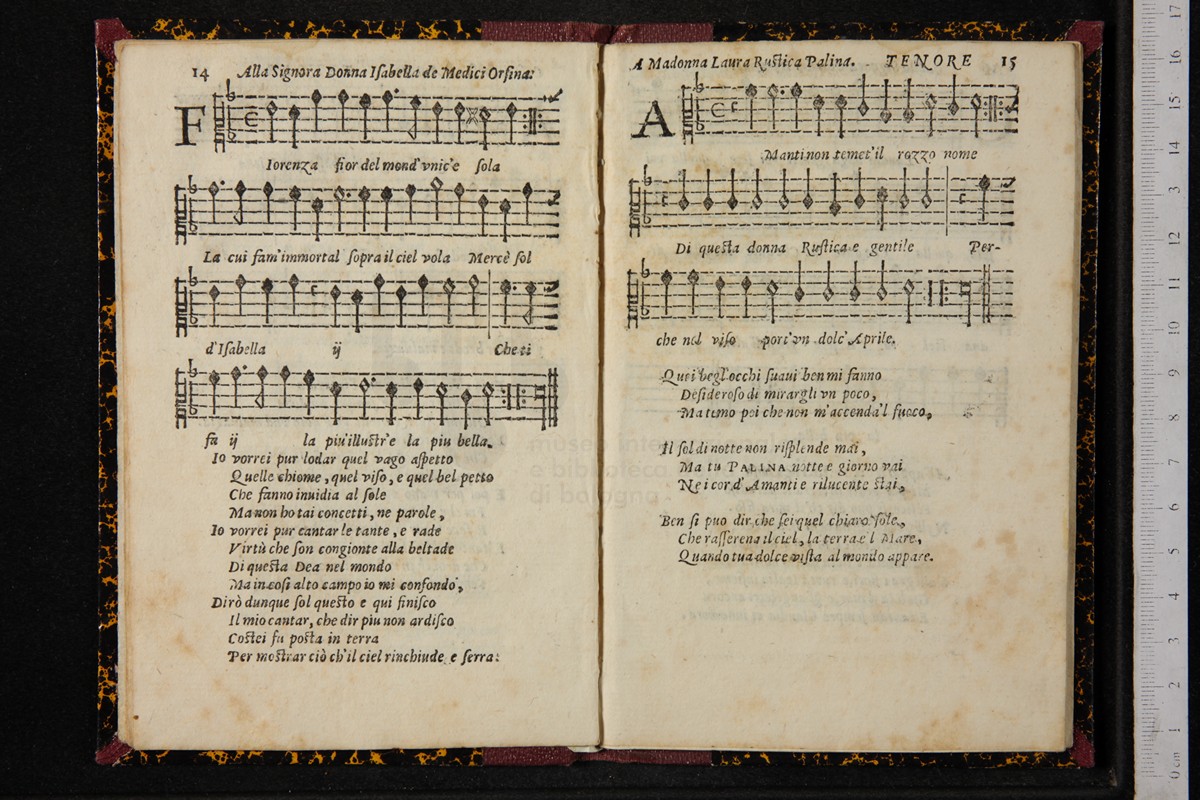 14 Alla Signora Donna Iſabella de Medici Orſina:
F
Iorenza fior del mond' vnic'e ſola
La cui fam'immortal ſopra il ciel vola Mercè ſol
d'Iſabella ij Che ti
fu ij la piu'illuſtr'e la piu bella.
Io vorrei pur lodar quel vago aſpetto
Quelle chiome, quel viſo, e quel bel petto
Che fanno inuidia al ſole
Ma non ho tai concetti, ne parole,
Io vorrei pur cantar le tante, e rade
Virtù che ſon congionte alla beltade
Di queſta Dea nel mondo
Ma in coſi alto campo io mi confondo,
Dirò dunque ſol queſto e qui finiſco
Il mio cantar, che dir piu non ardiſco
Coſtei fu poſta in terra
Per moſtrar ciò ch'il ciel rinchiude e ſerra:
A Madonna Laura Ruſtica Palina. TENORE 15
A
Manti non temet'il rozzo nome
Di queſta donna Ruſtica e gentile Per-
che nel viſo port'vn dolc'Aprile.
Quei begl'occhi ſuaui ben mi fanno
Deſideroſo di mirargli vn poco,
Ma temo poi che non m'accenda'l fuoco,
Il ſol di notte non riſplende mai,
Ma tu PALINA notte e giorno vai
Ne i cor d'Amanti e rilucente ſtai,
Ben ſi puo dir che ſei quel chiaro ſole,
Che raſſerena il ciel, la terra e'l Mare,
Quando tua dolce viſta al mondo appare.
museo inte
e biblioteca
di bologna
0 cm 1 2 3 4 5 6 7 8 9 10 11 12 13 14 15 16 17